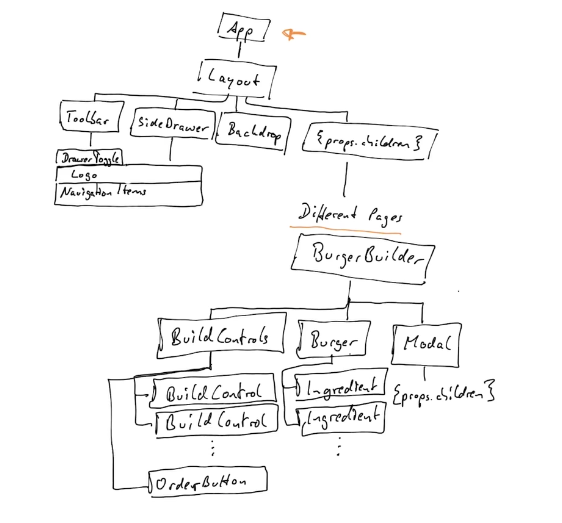 App
Layout
Toolbar
SideDrawer
Backdrop
{props.children}
DrawerToggle
Logo
Navigation Items
Different Pages
BurgerBuilder
BuildControls
Burger
Modal
BuildControl
Ingredient
{props.children}
BuildControl
Ingredient
⋮
⋮
OrderButton